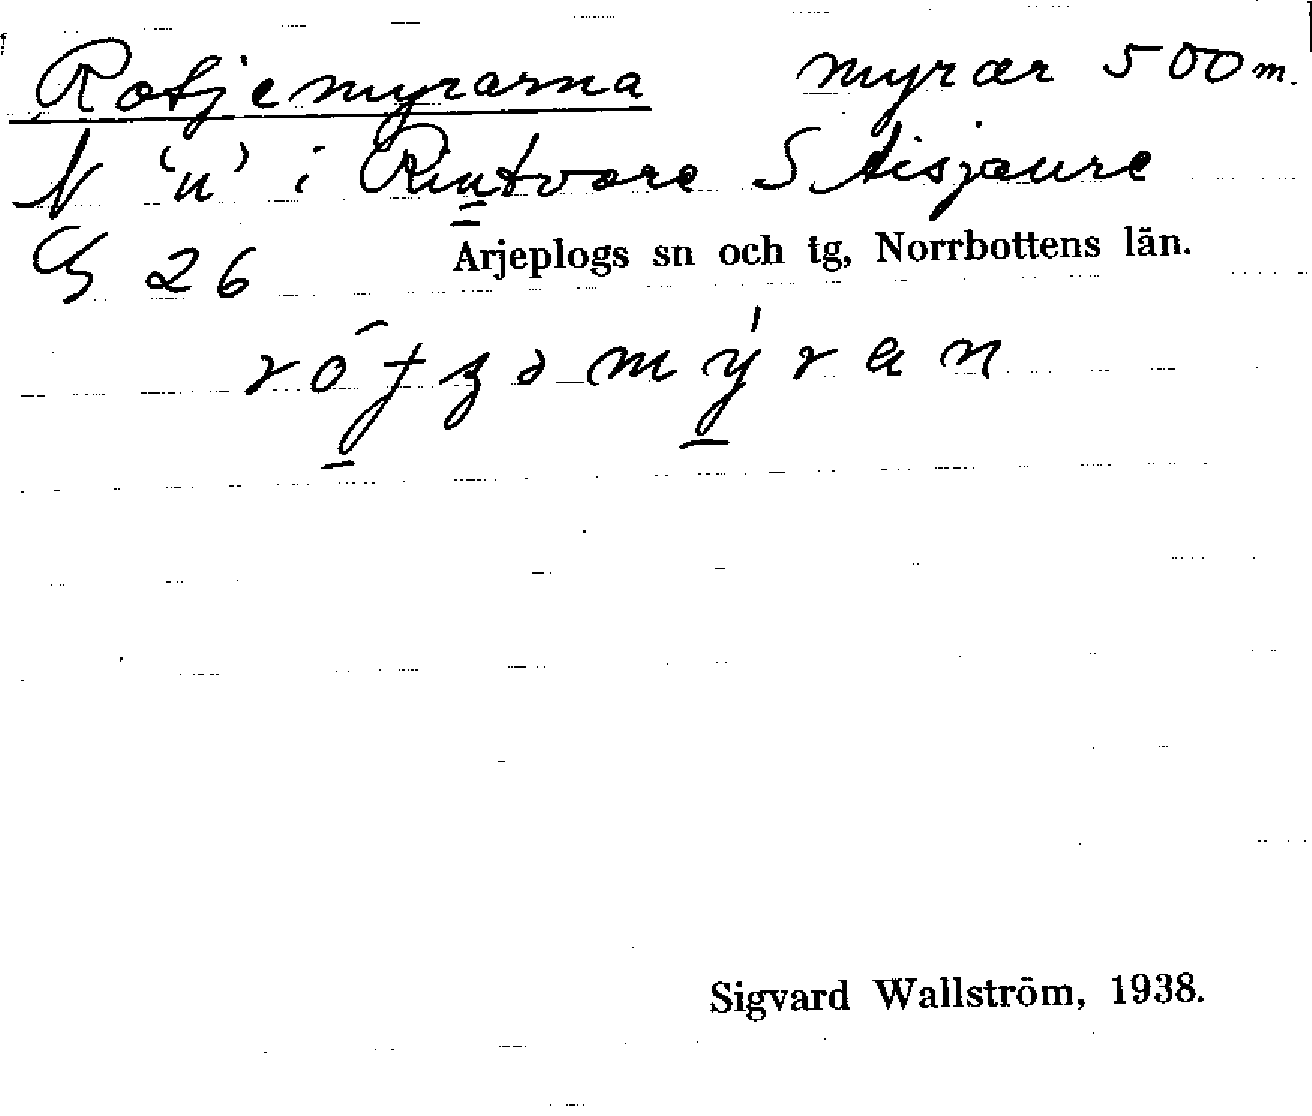 Rotjemyrarna myrar 500 m.
N 'u' i Riutvare S Aisjaure
G 26
Arjeplogs sn och tg, Norrbottens län.
Sigvard Wallström, 1938.